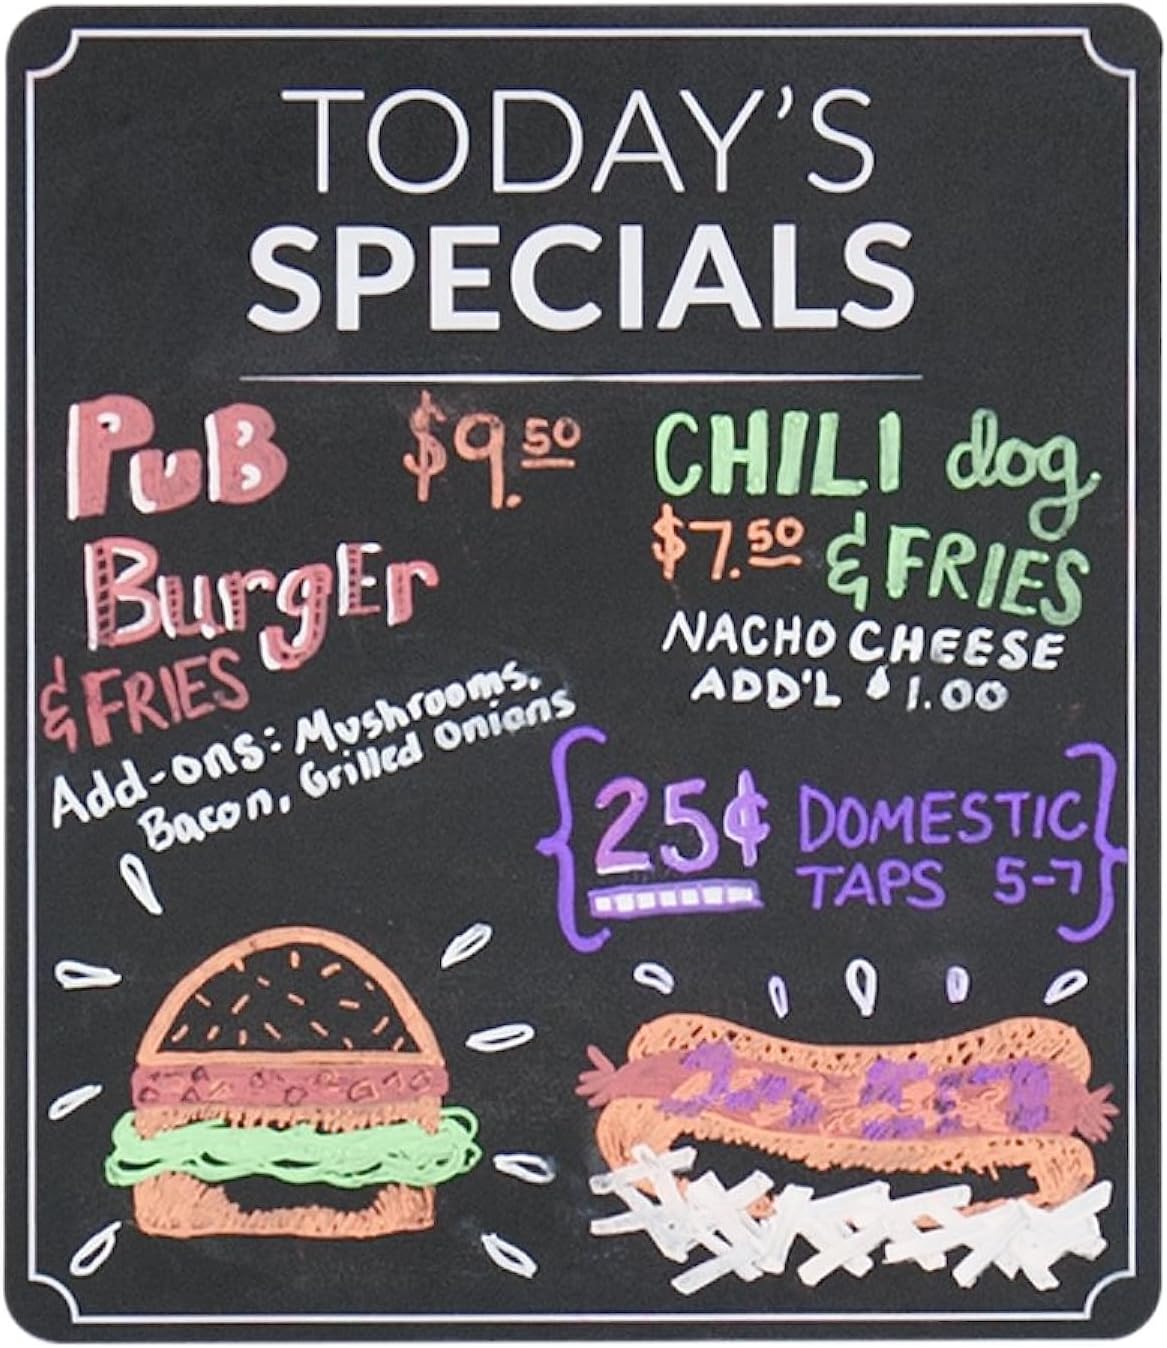 TODAY'S
SPECIALS
PuB $9.50
BurgEr
& FRIES
Add-ons: Mushrooms,
Bacon, Grilled onions
CHILI dog
$7.50 & FRIES
NACHO CHEESE
ADD'L $1.00
{25¢ DOMESTIC
TAPS 5-7}